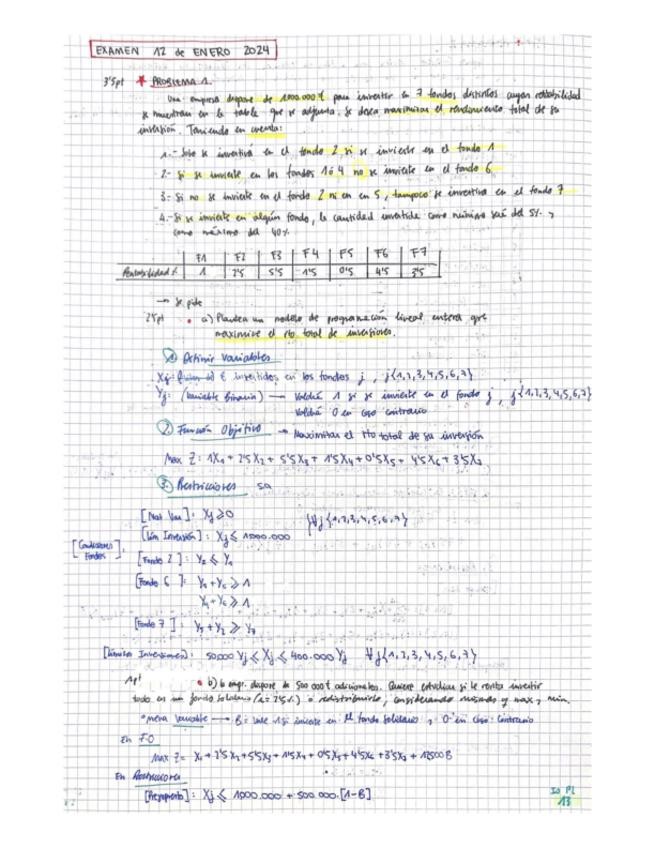 EXAMEN 12 de ENERO 2024
3'5pt * PROBLEMA 1.
Una empresa dispone de 1000.000 € para invertir en 7 fondos distintos cuya rentabilidad
se muestran en la tabla que se adjunta. Se desea maximizar el rendimiento total de su
inversión. Teniendo en cuenta:
1.- Solo se invertirá en el fondo 2 si se invierte en el fondo 1
2- Si se invierte en los fondos 1 ó 4 no se invierte en el fondo 6
3- Si no se invierte en el fondo 2 ni en en 5, tampoco se invertira en el fondo 7
4.- Si se invierte en algún fondo, la cantidad invertida como mínimo será del 5% y
como máximo del 40%.
F1 F2 F3 F4 F5 F6 F7
Rentabilidad % 1 2'5 5'5 1'5 0'5 4'5 3'5
→ Se pide
2'5pt • a) Plantea un modelo de programación lineal entera que
maximice el rto total de inversiones.
1) Definir Variables
Xj: € invertidos en los fondos j, j{1,2,3,4,5,6,7}
Yj: (Variable Binaria) → Valdrá 1 si se invierte en el fondo j, j{1,2,3,4,5,6,7}
Valdrá 0 en caso contrario
2. Función Objetivo → Maximizar el rto total de su inversión
Max Z: 1X1 + 2'5X2 + 5'5X3 + 1'5X4 + 0'5X5 + 4'5X6 + 3'5X7
3. Restricciones sa
[Nat Var]: Xj ≥ 0 } ∀j {1,2,3,4,5,6,7}
[Lim Inversión]: Xj ≤ 1000.000
[Condiciones Fondos]:
[Fondo 2]: Y2 ≤ Y1
[Fondo 6]: Y1 + Y6 ≥ 1
Y4 + Y6 ≥ 1
[Fondo 7]: Y5 + Y2 ≥ Y7
[Límites Inversiones]: 50.000 Yj ≤ Xj ≤ 400.000 Yj ∀j{1,2,3,4,5,6,7}
1pt • b) la empr. dispone de 500 000€ adicionales. Quiere estudiar si le renta invertir
todo en un fondo solidario (i=2'5%) o redistribuirlo, considerando mismo y max, min.
Variable → B = Vale 1 si invierte en el fondo solidario y 0 en caso contrario
En FO
Max Z= X1 + 2'5X2 + 5'5X3 + 1'5X4 + 0'5X5 + 4'5X6 + 3'5X7 + 12500B
En Restricciones
[Presupuesto]: Xj ≤ 1000.000 + 500.000.[1-B]
IO PL
13